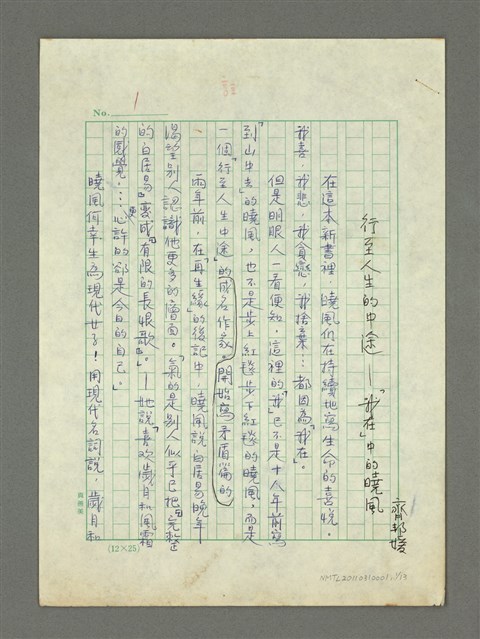 No. 1
行至人生的中途——「我在」中的曉風
齊邦媛
在這本新書裡，曉風仍在持續地寫生命的喜悅。
我喜，我悲，我貪戀，我捨棄…都因為「我在」。
但是明眼人一看便知，這裡的「我」已不是十八年前寫
「到山中去」的曉風，也不是步上紅毯步下紅毯的曉風，而是
一個「行至人生中途」的成名作家。開始寫矛盾篇的
兩年前，在「再生緣」的後記中，曉風說白居易晚年
渴望別人認識他更多的層面。「氣的是別人似乎已把『完整
的白居易』裹成『有限的長恨歌』。」——她說「喜歡歲月和風霜
的圓覺，…心更許的卻是今日的自己。」
曉風何幸生為現代女子！用現代名詞說，歲月和
(12×25)
NMTL20110810001.1/19